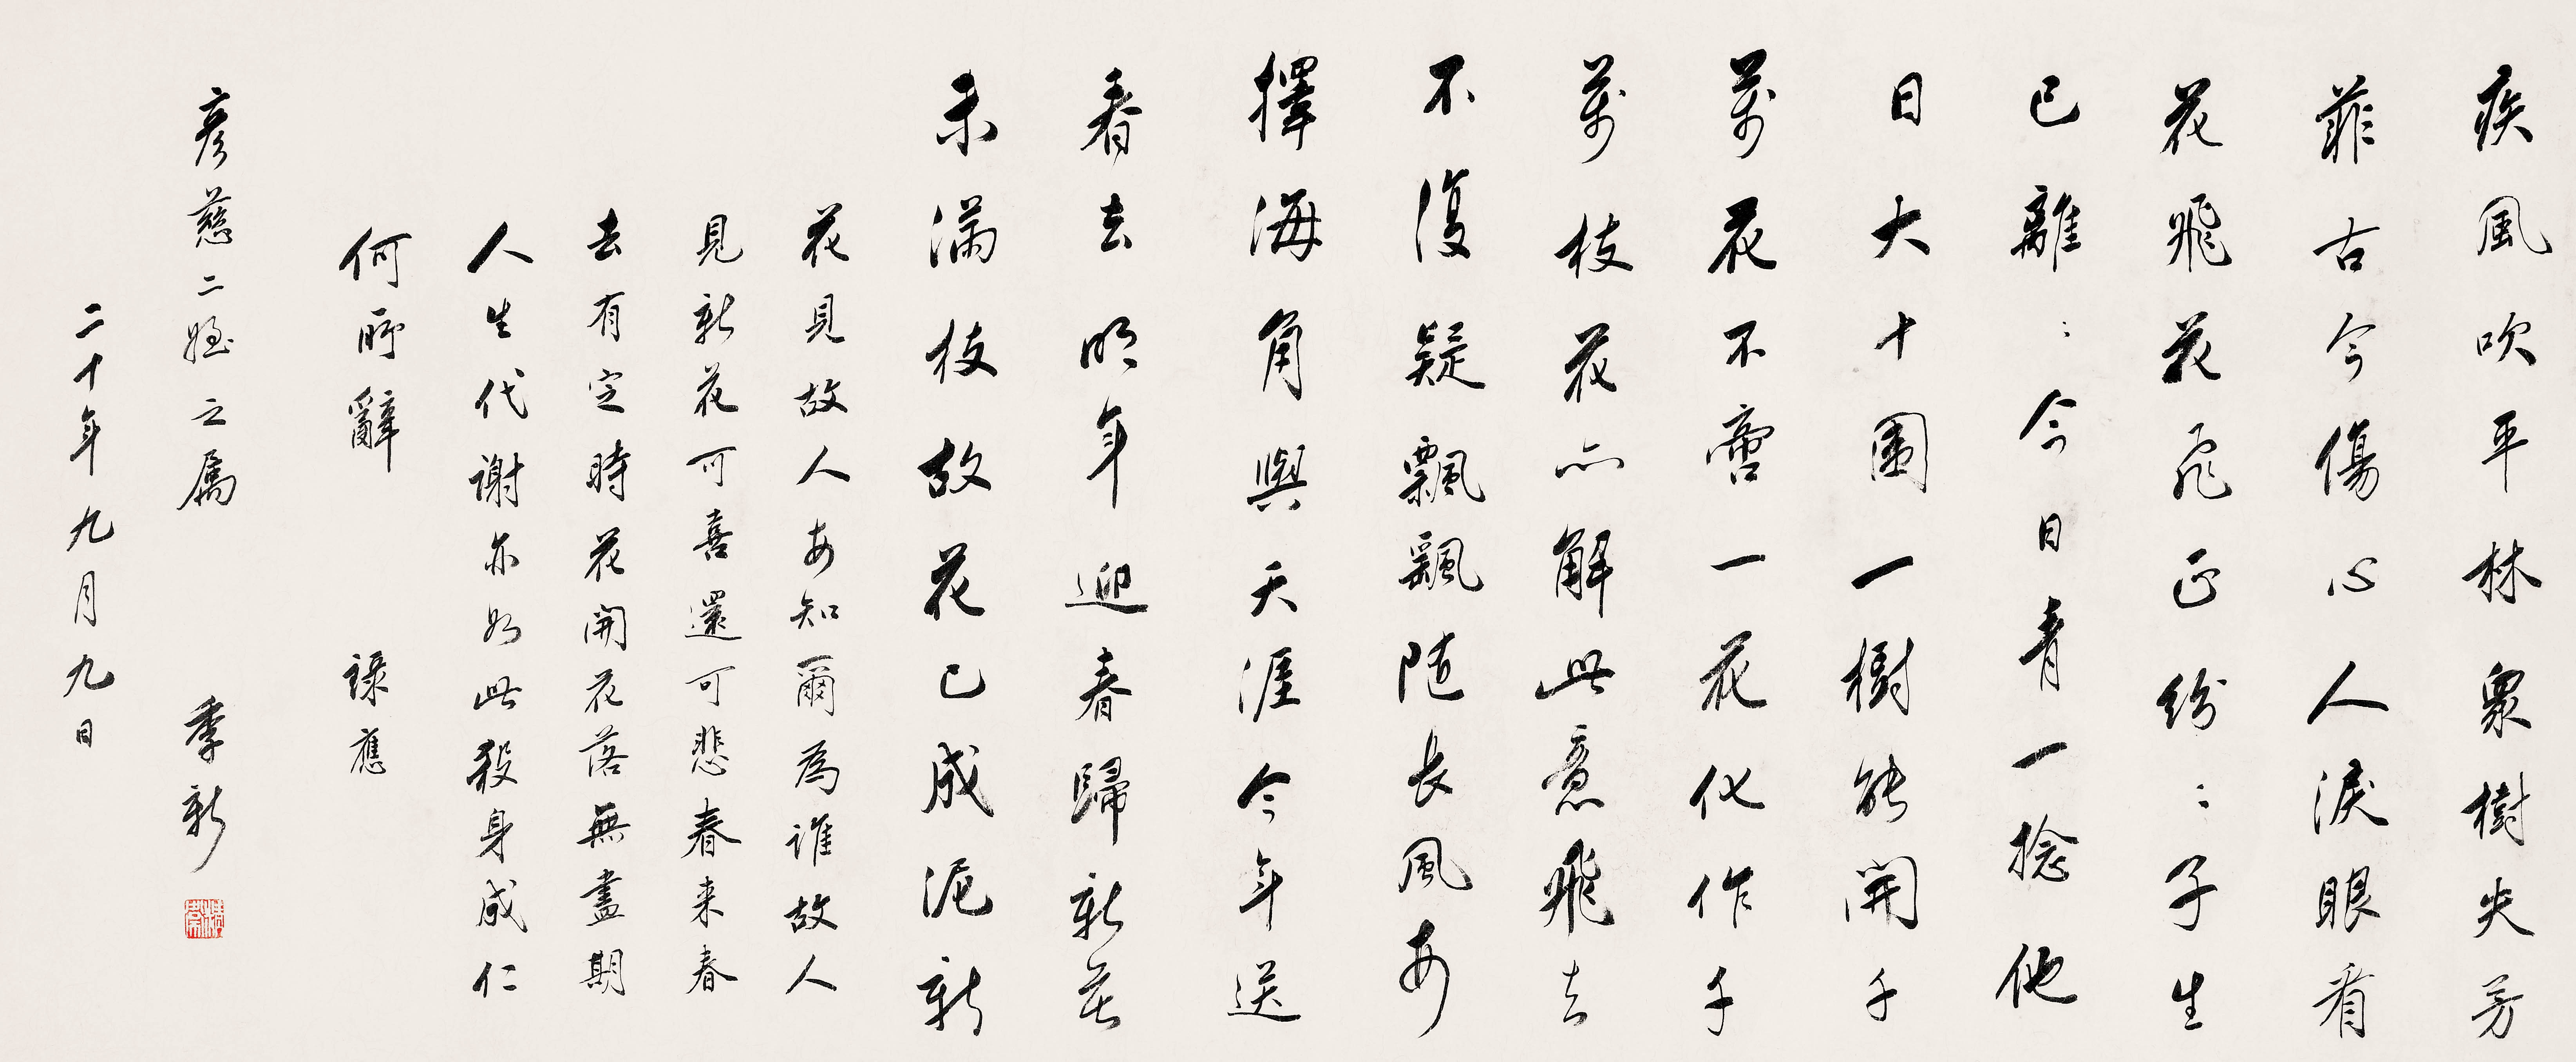 疾風吹平林衆樹失芳
菲古今傷心人淚眼看
花飛花飛正紛〻子生
已離〻今日青一捻他
日大十圍一樹能開千
萬花不啻一花化作千
萬枝花亦解此意飛去
不復疑飄飄隨長風安
擇海角與天涯今年送
春去明年迎春歸新花
未滿枝故花已成泥新
花見故人安知爾為誰故人
見新花可喜還可悲春来春
去有定時花開花落無盡期
人生代謝亦如此殺身成仁
何所辭 錄應
彥慈二姪之屬 季新
二十年九月九日